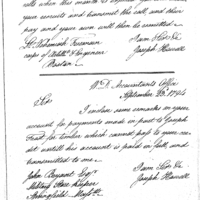 your receipts and transmit the roll and their
pay and your own will then be remitted
I am Sir &c
Joseph Howell
Lt Nehemiah Freeman
corps of Artill & Engineer
Boston
W. D. Accountants Office
September 30th 1794
Sir
I inclose some remarks on your
account for payments made in part to Joseph
Frost for timber which cannot pass to your cre
dit untill his account is paid in full, and
transmitted to me
I am Sir &c
Joseph Howell
John Bryant Esqr
Military Store Keeper
Springfield Massts